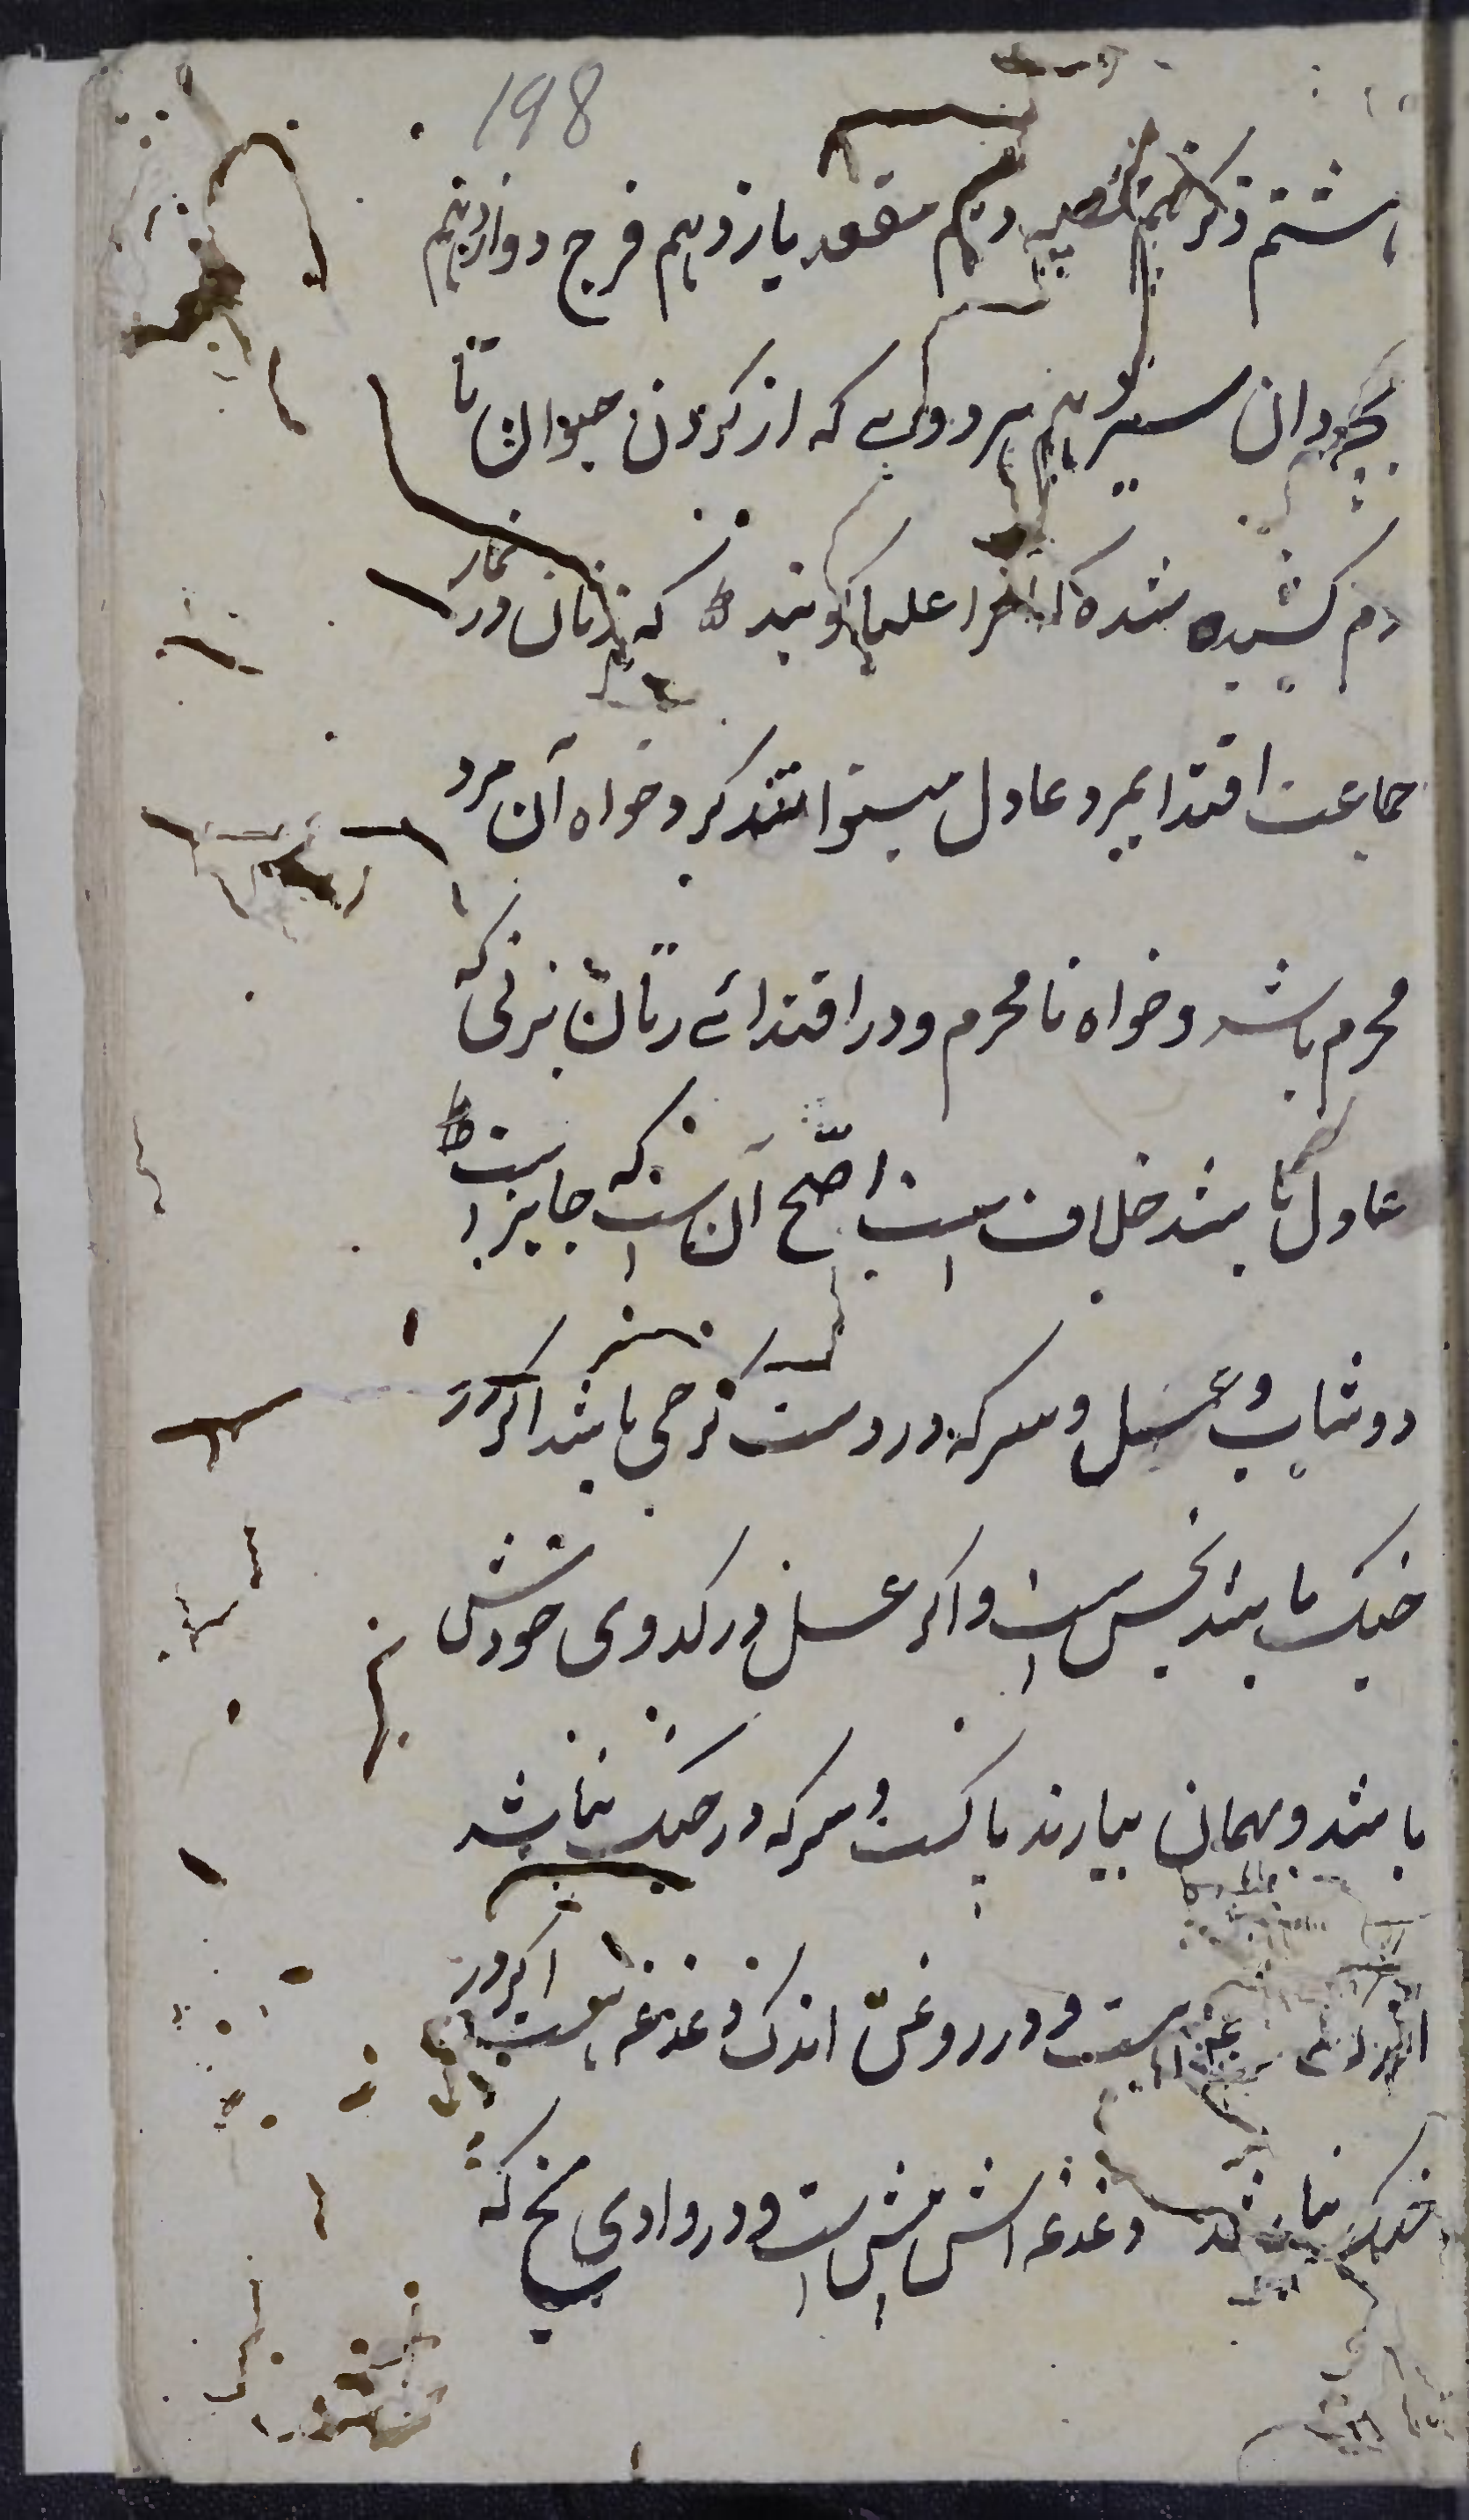 198
هاشتم ذکر نهم خصیه دهم مقعد یازدهم فرج دوازدهم
بچه‌دان سیزدهم هر دو پی که از گردن حیوان تا
دم کشیده شده که آنرا علبا گویند که زنان در نماز
جماعت اقتدا بمرد عادل میتوانند کرد خواه آن مرد
محرم باشد و خواه نامحرم و در اقتدائے زنان بزنی که
عادل باشد خلاف است اصّح آن است که جایز است
دوشاب و عسل و سرکه در دست ترجی باشد اگر در
خیک باشد نجس است و اگر عسل در کدوی خودش
باشد و بهمان بیارند پاکست و سرکه در خیک نباشد
است و در روغن اندک دغدغه هست اگر در
خیک نباشد دغدغه اش بیش است و در وادی یخ که